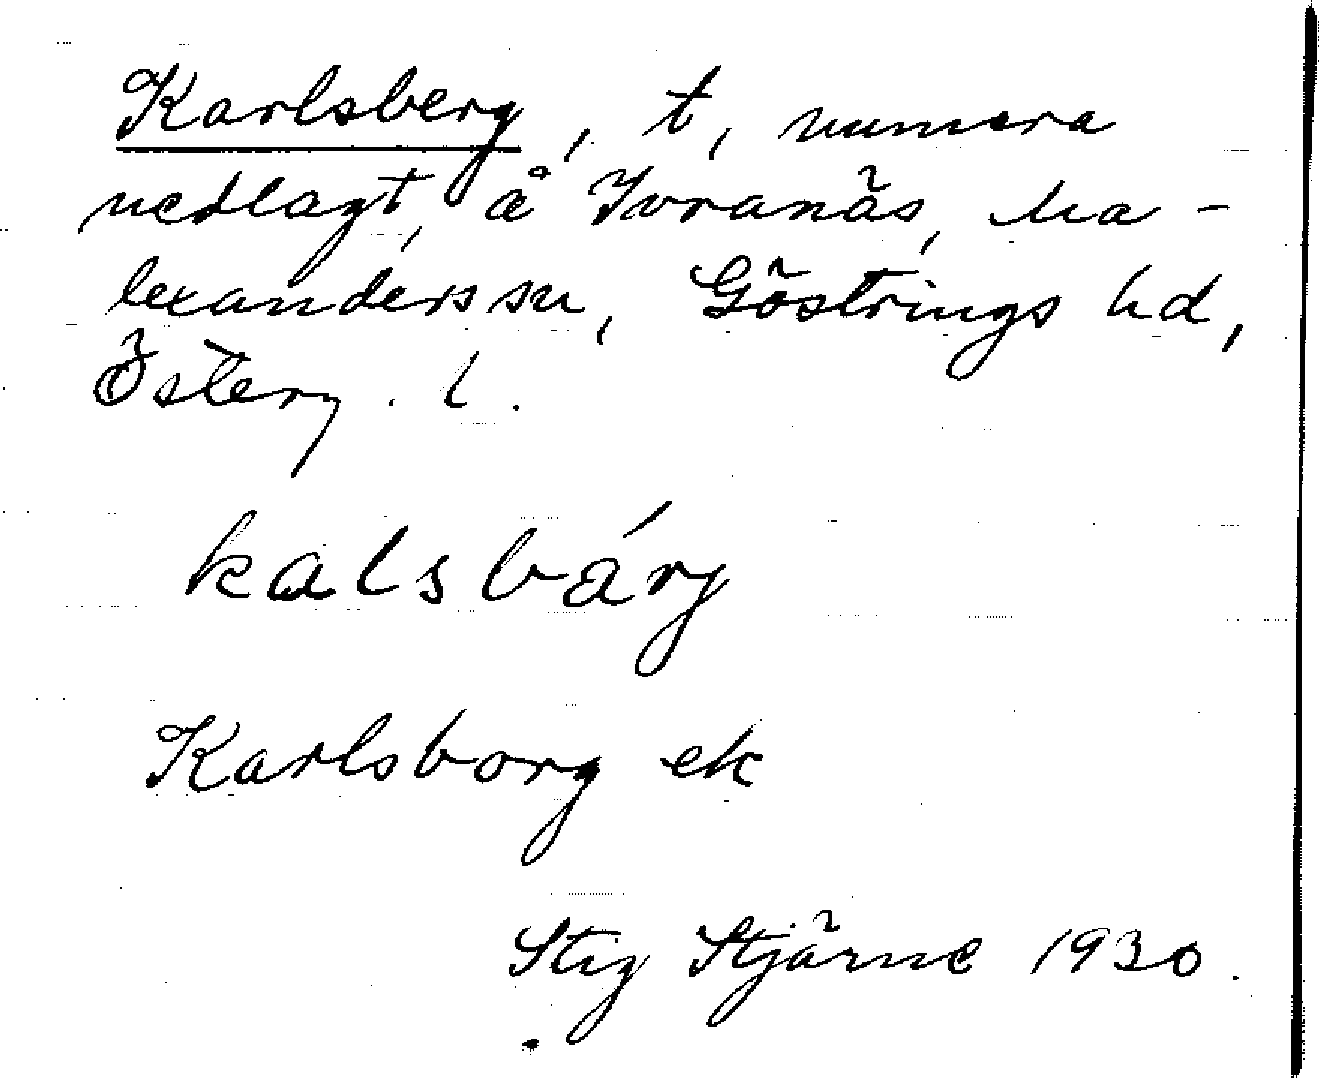 Karlsberg, t, numera
nedlagt, å Ivranäs, Ma-
lexanders sn, Göstrings hd,
Österg. l.
kalsbárg
Karlsborg ek
Stig Stjärne 1930.